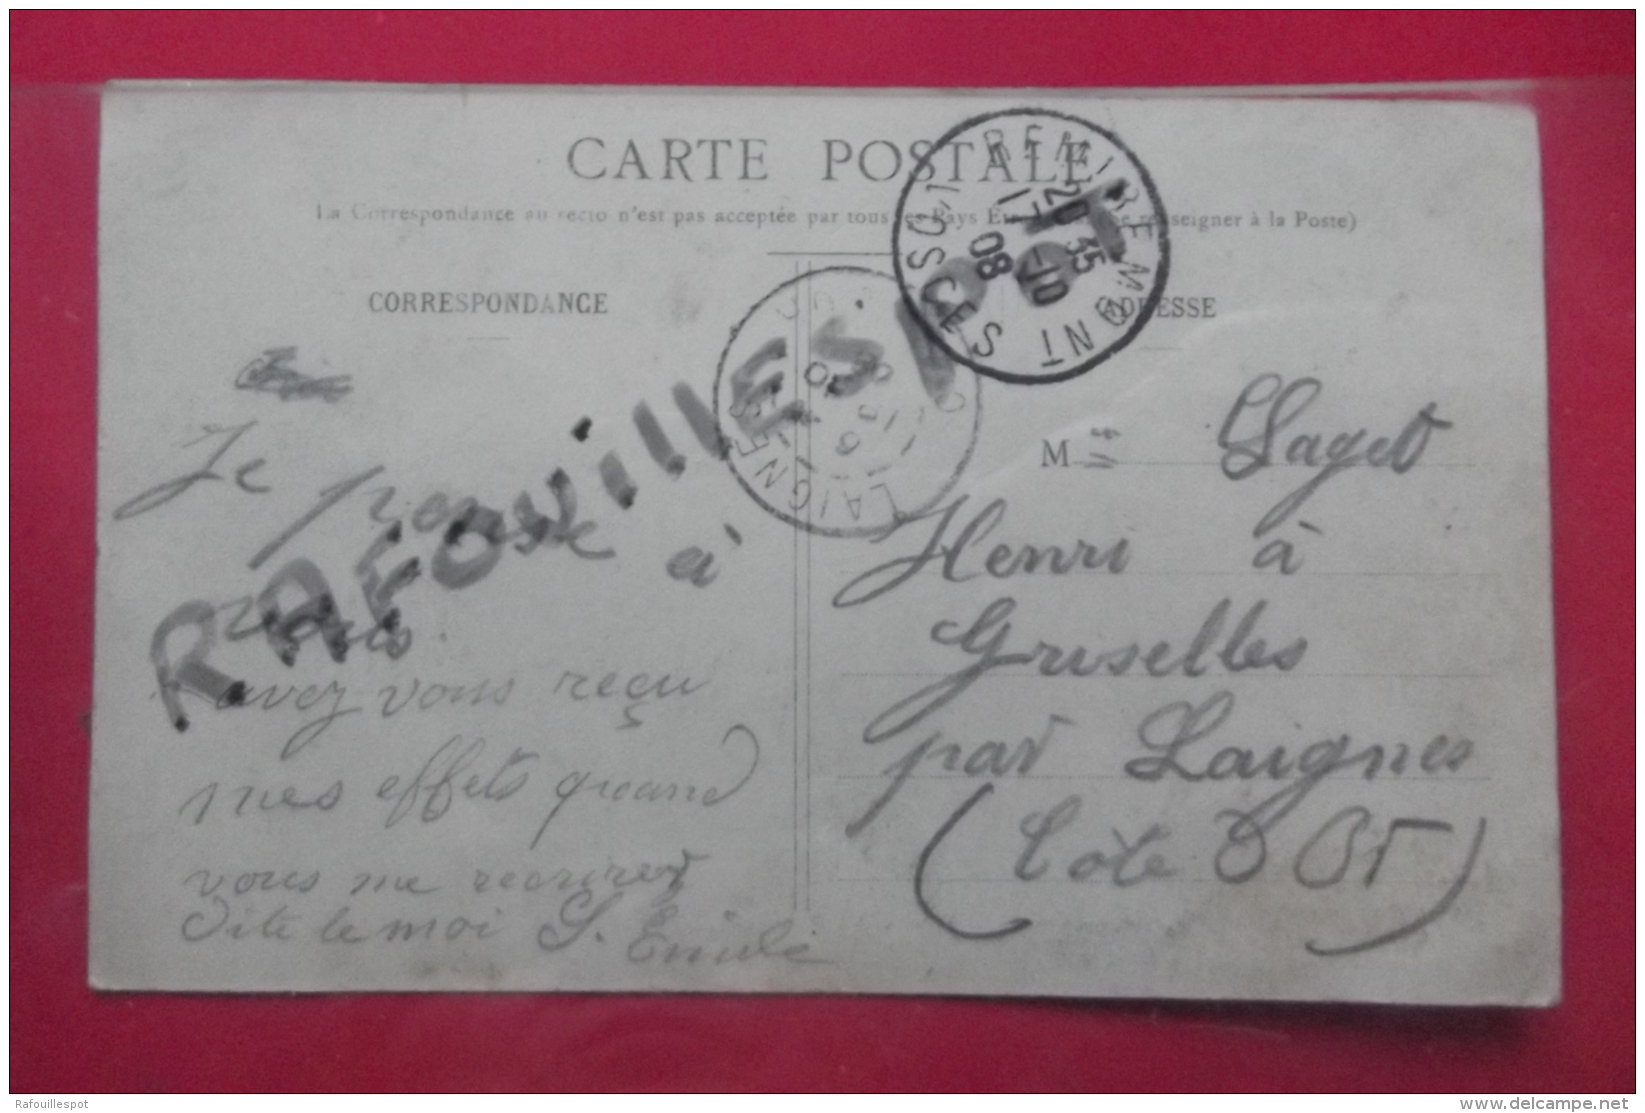 CARTE POSTALE
La Correspondance au recto n'est pas acceptée par tous les Pays Étrangers seigner à la Poste)
CORRESPONDANCE
ADRESSE
REMIREMONT
VOSGES
20 35
17 -10
08
LAIGNES
RAFOUILLESPOT
Je pense à
vous
avez vous reçu
mes effets quand
vous me recrirez
Dite le moi S. Emile
M Saget
Henri à
Griselles
par Laignes
(Côte D Or)
Rafouillespot
www.delcampe.net